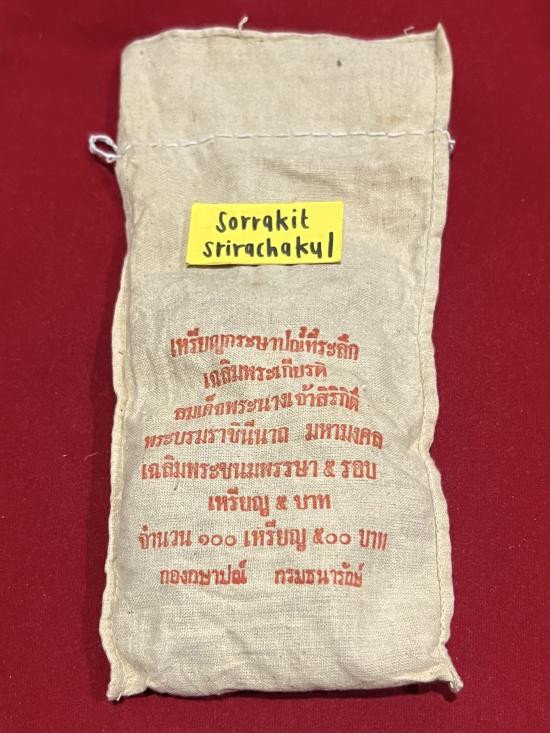 Sorrakit
srirachakul
เหรียญกระษาปณ์ที่ระลึก
เฉลิมพระเกียรติ
สมเด็จพระนางเจ้าสิริกิติ์
พระบรมราชินีนาถ มหามงคล
เฉลิมพระชนมพรรษา ๕ รอบ
เหรียญ ๕ บาท
จำนวน ๑๐๐ เหรียญ ๕๐๐ บาท
กองกษาปณ์ กรมธนารักษ์